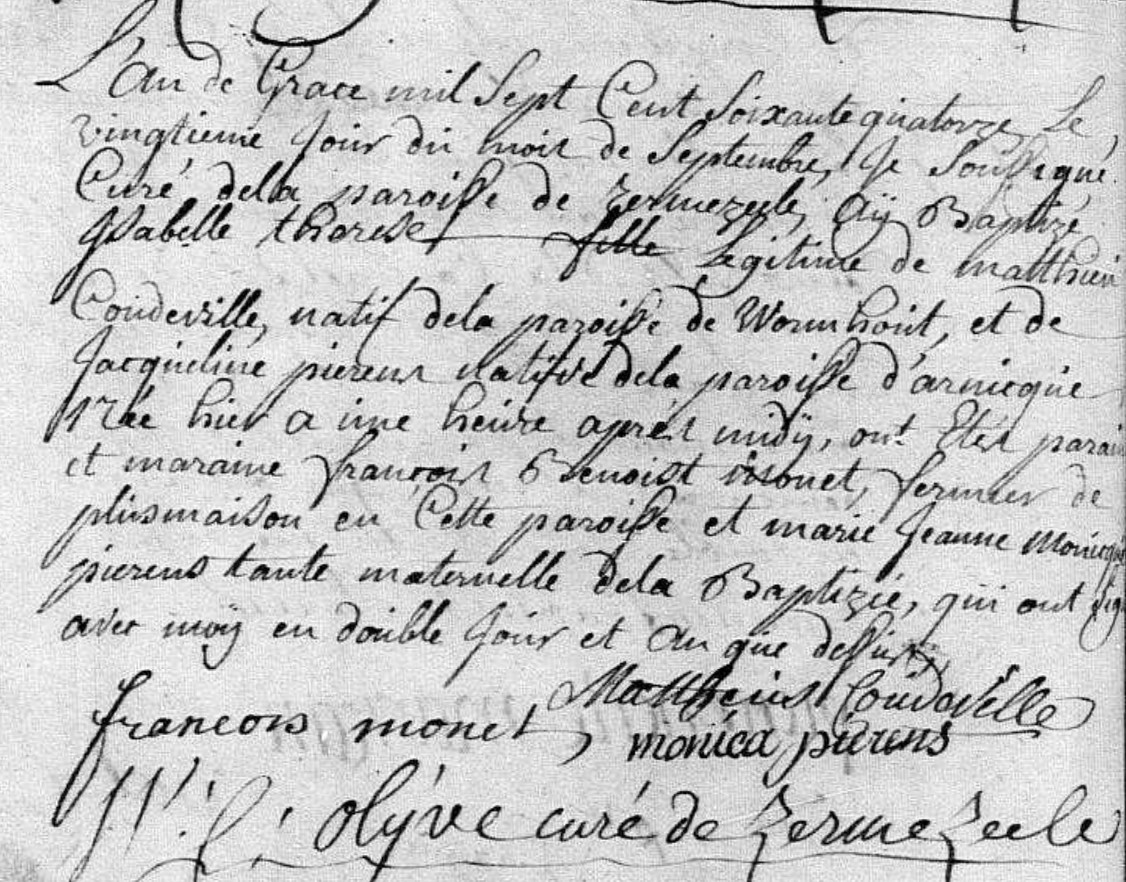 L'an de Grace mil Sept Cent Soixante quatorze, Le
vingtieme Jour du mois de Septembre, Je Soussigné
Curé dela paroisse de Zermezeele, aÿ Baptizé
Isabelle therese fille Legitime de matthieu
Coudeville, natif dela paroisse de Wormhout, et de
Jacqueline pierens native dela paroisse d'arnicque
née hier a une heure aprés midÿ, ont Etés parain
et maraine françois Benoist monet, fermier de
plusmaison en Cette paroisse et marie Jeanne Monicque
pierens tante maternelle dela Baptizée, qui ont signé
avec moÿ en double Jour et an que dessus,
francois monet Mattheius Coudeville
monica pierens
olÿve curé de Zermezeele